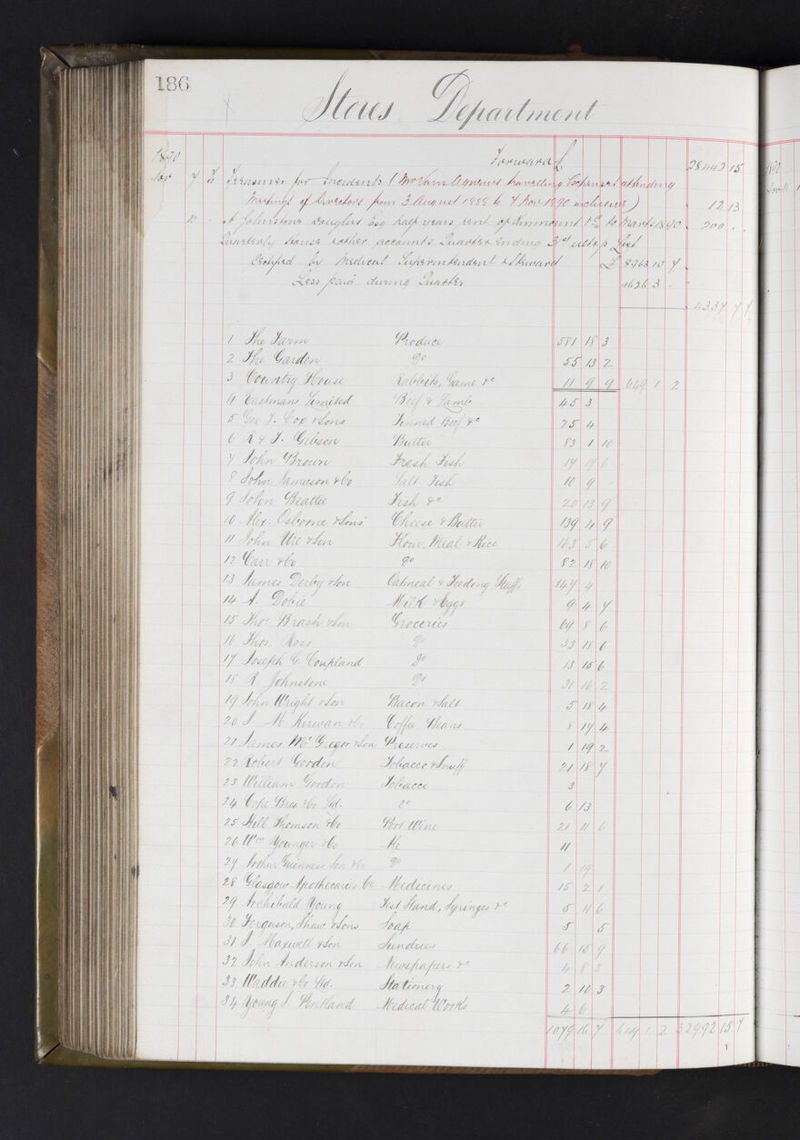 186
Stores Department
1890 Forward £ 28442 15
Nov 7 To Treasurer for Incidents (Mr Travelling Expenses attending
Meetings of Directors from 3 August 1889 to 7 Nov 1890 inclusive) 12 13
A Johnstone Douglas Esq half years rent of to 1890 200 . .
Quarterly House & other accounts Quarter ending 3rd
Certified by Medical Superintendent & Steward £ 8963 10 7
Less paid during Quarter 4626 3 .
4337 7
1 The Farm Produce 581 18 3
2 The Garden Do 55 13 2
3 Country House Rabbits, Game &c 11 9 9 649 1 2
4 Eastmans Limited Beef & Lamb 45 3
5 Geo J. Cox & Sons Tinned Beef &c 25 4
6 R & J. Gibson Butter 83 1 10
7 John Brown Fresh Fish 19 19 6
8 John Jameson & Co Salt Fish 10 9
9 John Beattie Fish &c 20 13 9
10 Alex. Osborne & Sons Cheese & Butter 139 4 9
11 John Ure & Son Flour, Meal & Rice 163 5 6
12 Carr & Co Do 82 18 10
13 James Derby & Son Oatmeal & Feeding Stuffs 247 4
14 A. Dobie Milk & Eggs 9 4 7
15 Thos Brash & Son Groceries 64 8 6
16 Thos. Ross Do 33 18 6
17 Joseph G. Coupland Do 13 15 6
18 R. Johnstone Do 31 16 2
19 John Wright & Son Bacon & Salt 5 18 4
20 J. M. Kerwan & Co Coffee Beans 8 14 4
21 James McGregor & Son Preserves 1 19 2
22 Robert Gordon Tobacco & Snuff 21 18 7
23 William Gordon Tobacco 3
24 Cope Bros & Co Ld. Do 6 13
25 Hill Thomson & Co Port Wine 21 11 6
26 Wm Younger & Co Ale 11
27 Arthur Guinness Son & Co Do 1 19
28 Glasgow Apothecaries Co Medicines 15 2 1
29 Archibald Young Test Stand, Syringes &c 5 11 6
30 Ferguson, Shaw & Sons Soap 5 5
31 J. Maxwell & Son Sundries 66 15 9
32 John Anderson & Son Newspapers &c 4 8 3
33 Waddie & Co Ld. Stationery 2 10 3
34 Young J. Pentland Medical Works 4 6
1079 16 7 649 1 2 32992 15 7